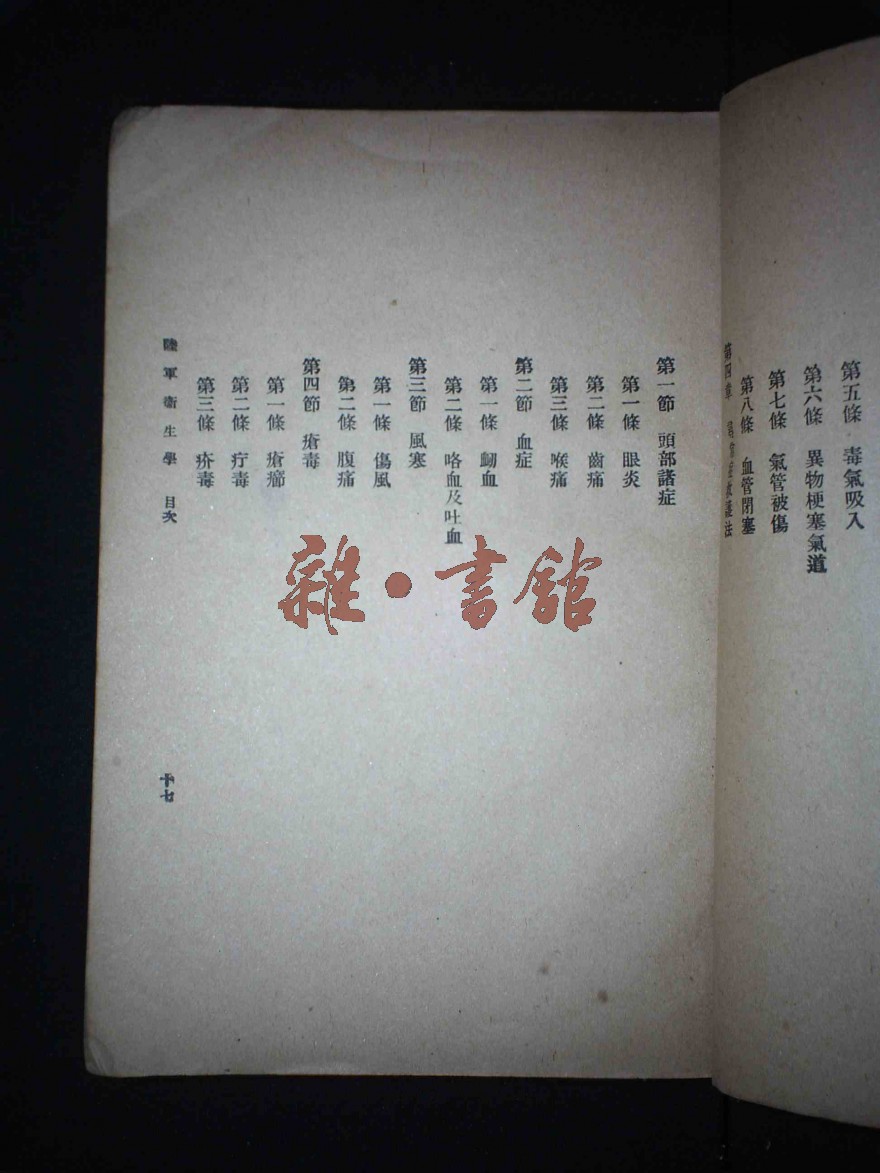 第五條　毒氣吸入
第六條　異物梗塞氣道
第七條　氣管被傷
第八條　血管閉塞
第四章　救護法
第一節　頭部諸症
第一條　眼炎
第二條　齒痛
第三條　喉痛
第二節　血症
第一條　衄血
第二條　咯血及吐血
第三節　風塞
第一條　傷風
第二條　腹痛
第四節　瘡毒
第一條　瘡癤
第二條　疔毒
第三條　疥毒
陸軍衛生學　目次
十七
雜·書館